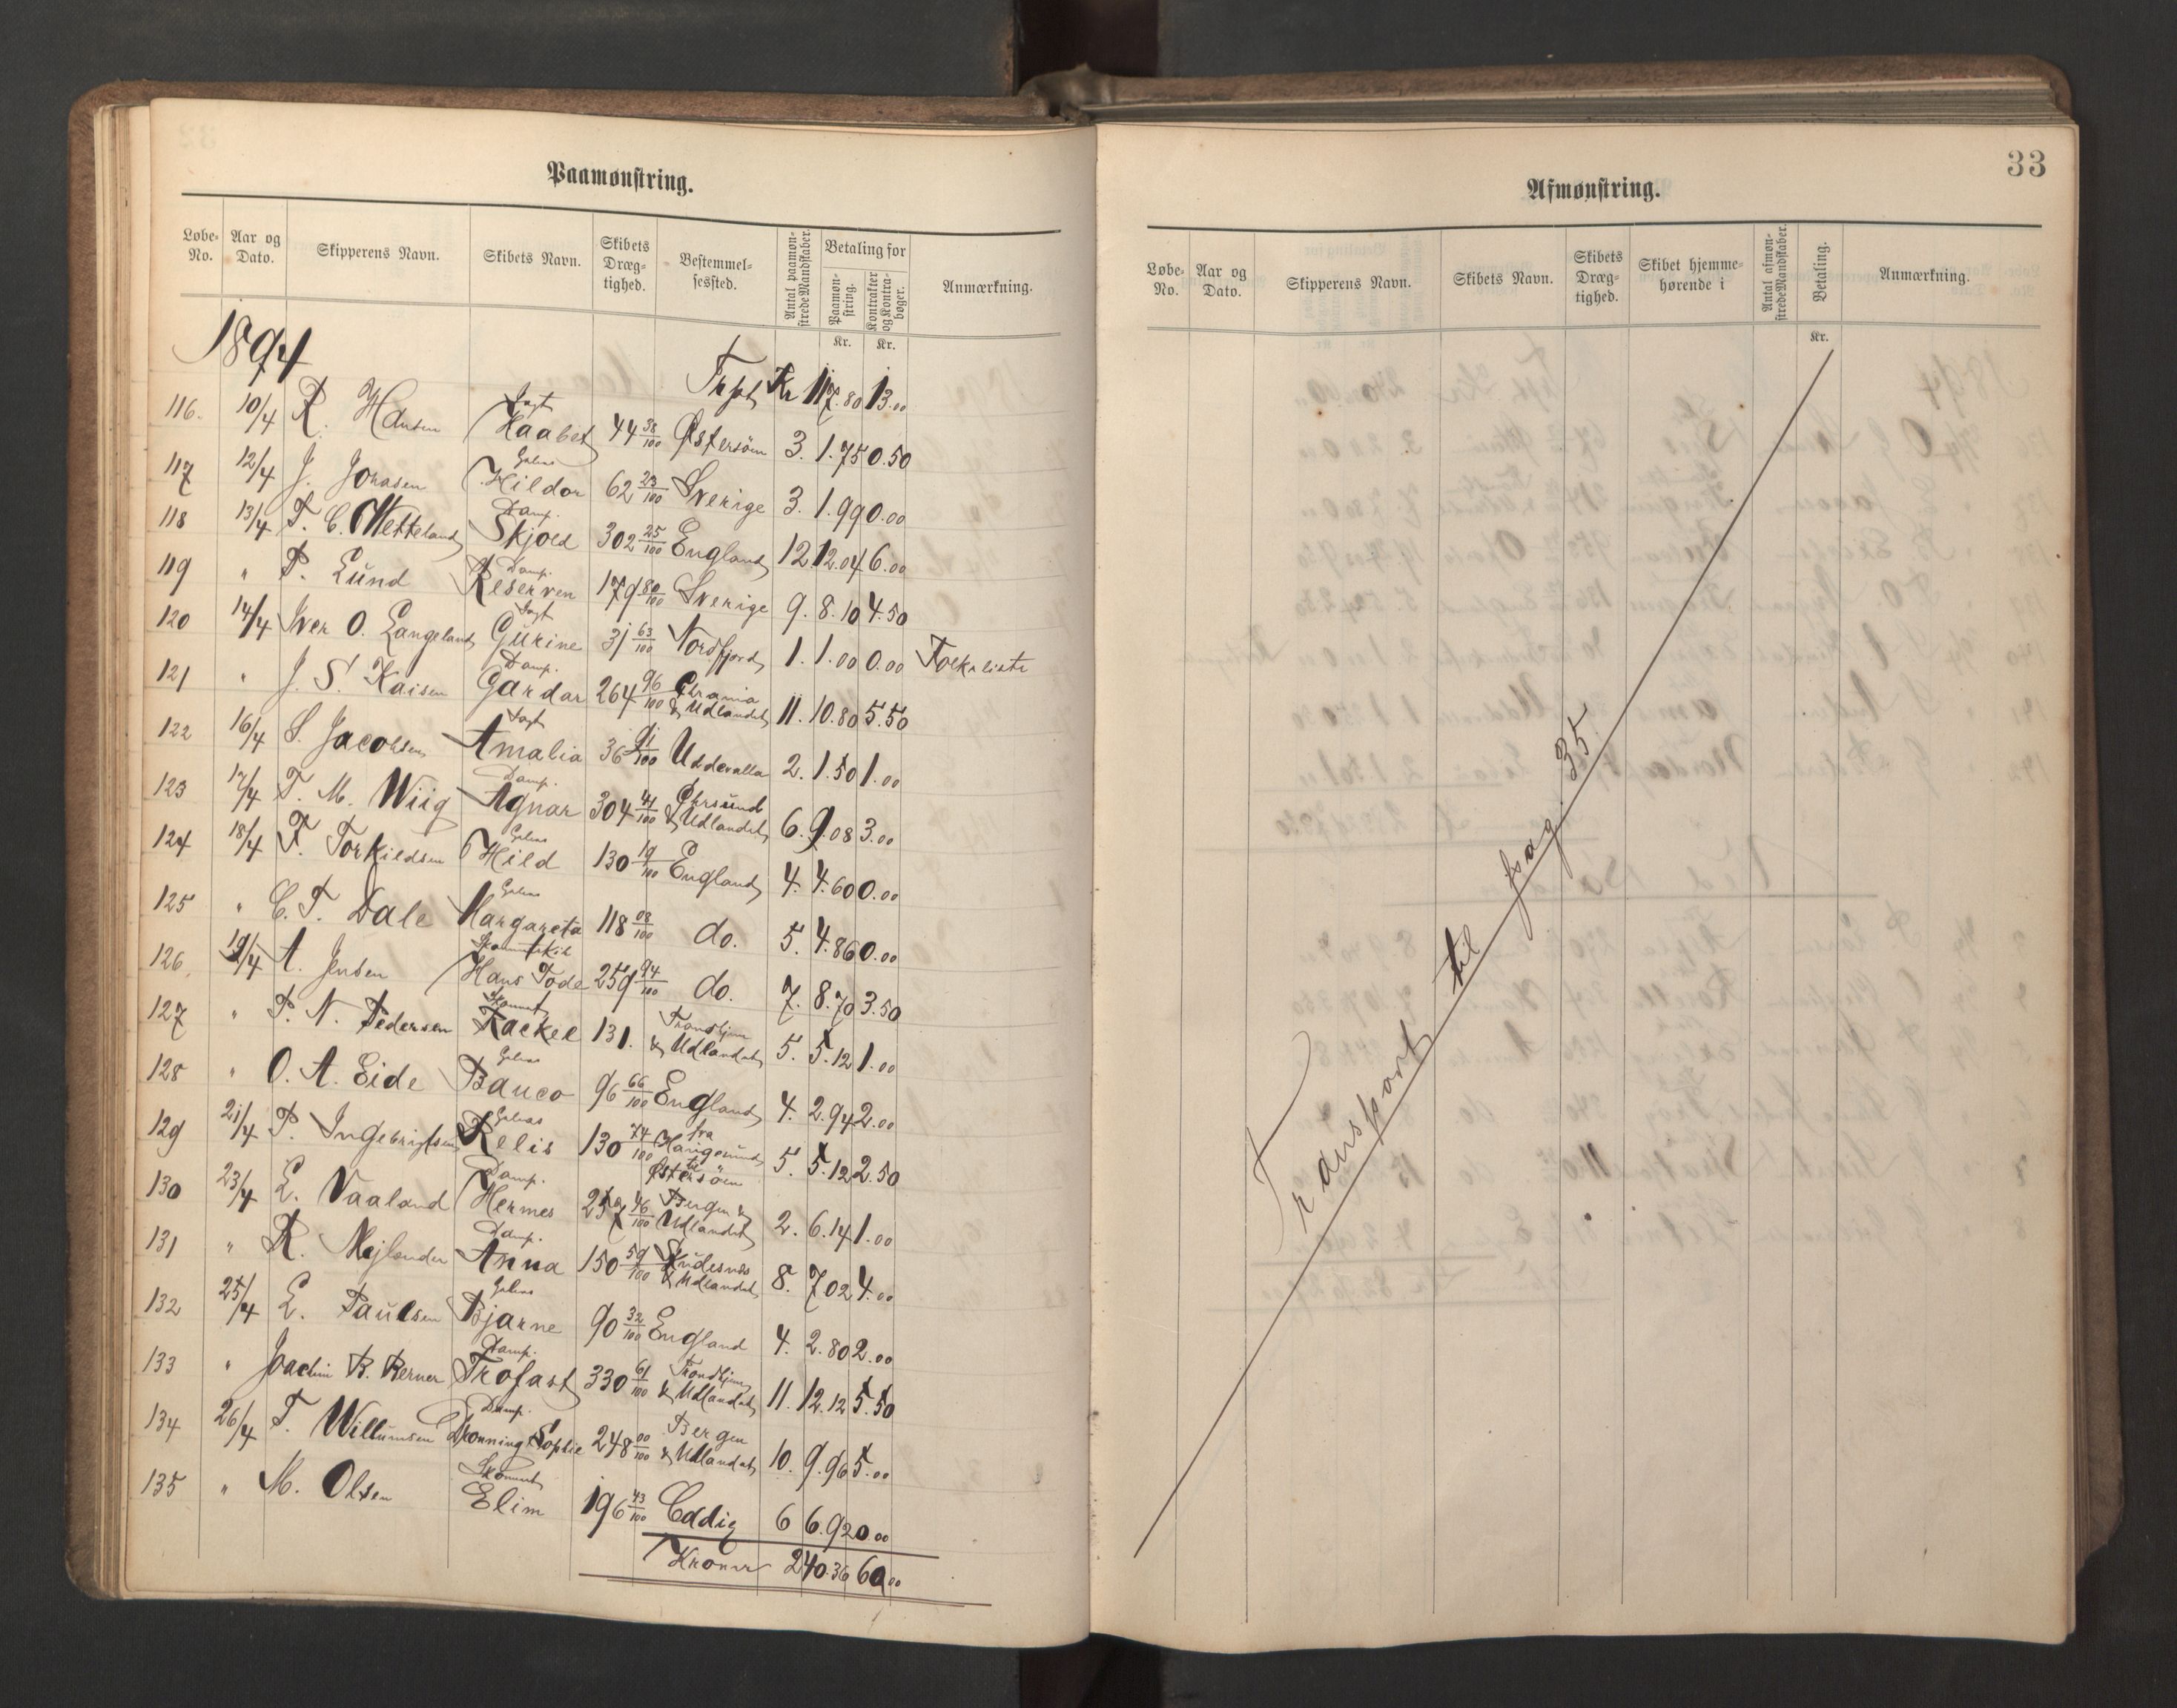 Paamønstring.
Løbe-No. Aar og Dato. Skipperens Navn. Skibets Navn. Skibets Dræg-tighed. Bestemmel-sessted. Antal paamøn-strede Mandskaber. Betaling for Paamøn-string. Kontrakter og Kontra-bøger. Anmærkning.
Kr. Kr.
1894
Trspt Kr 117.80 13.00
116. 10/4 R. Hansen Jagt Haabet 44 38/100 Østersöen 3. 1.75 0.50
117 12/4 J. Jonasen Galeas Hildor 62 23/100 Sverige 3. 1.99 0.00
118 13/4 T. C. Wetteland Damp. Skjold 302 25/100 England 12 12.04 6.00
119 " P. Lund Damp. Reserven 179 80/100 Sverige 9. 8.10 4.50
120 14/4 Iver O. Langeland Jagt Gurine 31 63/100 Nordfjord 1. 1.00 0.00 Folkeliste
121 " J. S. Kaisen Damp. Gardar 264 96/100 Chrania & Udlandet 11. 10.80 5.50
122 16/4 S. Jacobsen Jagt Amalia 36 91/100 Uddevalla 2. 1.50 1.00
123 17/4 T. M. Wiig Damp. Agnar 304 41/100 Chrsund & Udlandet 6. 9.08 3.00
124 18/4 F. Torkildsen Galeas Hild 130 19/100 England 4. 4.60 0.00
125 " C. T. Dale Galeas Margareta 118 08/100 do. 5. 4.86 0.00
126. 19/4 A. Jensen Skonnertskib Hans Tode 259 94/100 do. 7. 8.70 3.50
127 " P. N. Pedersen Skonnert Rackel 131. Trondhjem & Udlandet 5. 5.12 1.00
128 " O. A. Eide Galeas Banco 96 66/100 England 4. 2.94 2.00
129 21/4 P. Ingebrigtsen Galeas Relis 130 74/100 fra Haugesund til Østersöen 5. 5.12 2.50
130 23/4 L. Vaaland Damp. Hermes 257 46/100 Bergen & Udlandet 2. 6.14 1.00
131 " R. Mejlender Damp. Anna 150 59/100 Skudesnes & Udlandet 8. 7.02 4.00
132 25/4 L. Paulsen Galeas Bjarne 90 32/100 England 4. 2.80 2.00
133 " Joachim B. Berner Damp. Trofast 330 61/100 Trondhjem & Udlandet 11. 12.12 5.50
134 26/4 T. Willumsen Damp. Dronning Sophie 248 00/100 Bergen & Udlandet 10. 9.96 5.00
135 " M. Olsen Skonnert Elim 196 43/100 Caddig 6 6.92 0.00
Kroner 240.36 60.00
33
Afmønstring.
Løbe-No. Aar og Dato. Skipperens Navn. Skibets Navn. Skibets Dræg-tighed. Skibet hjemme-hørende i Antal afmøn-strede Mandskaber. Betaling. Anmærkning.
Kr.
Transport til pag. 35.